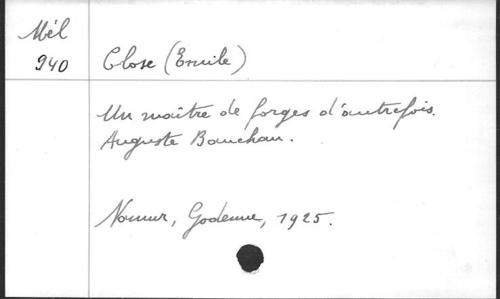 Mél
940
Close (Emile)
Un maître de forges d'autrefois.
Auguste Bauchau.
Namur, Godenne, 1925.